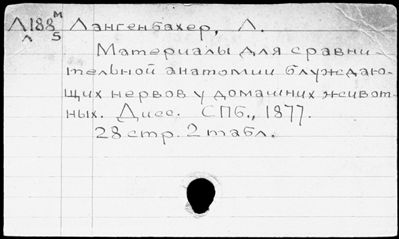 Л188 М/S Лангенбахер, Л.
Л
Материалы для сравни-
тельной анатомии блуждаю-
щих нервов у домашних живот-
ных. Дисс. СПб., 1877.
28 стр. 2 табл.